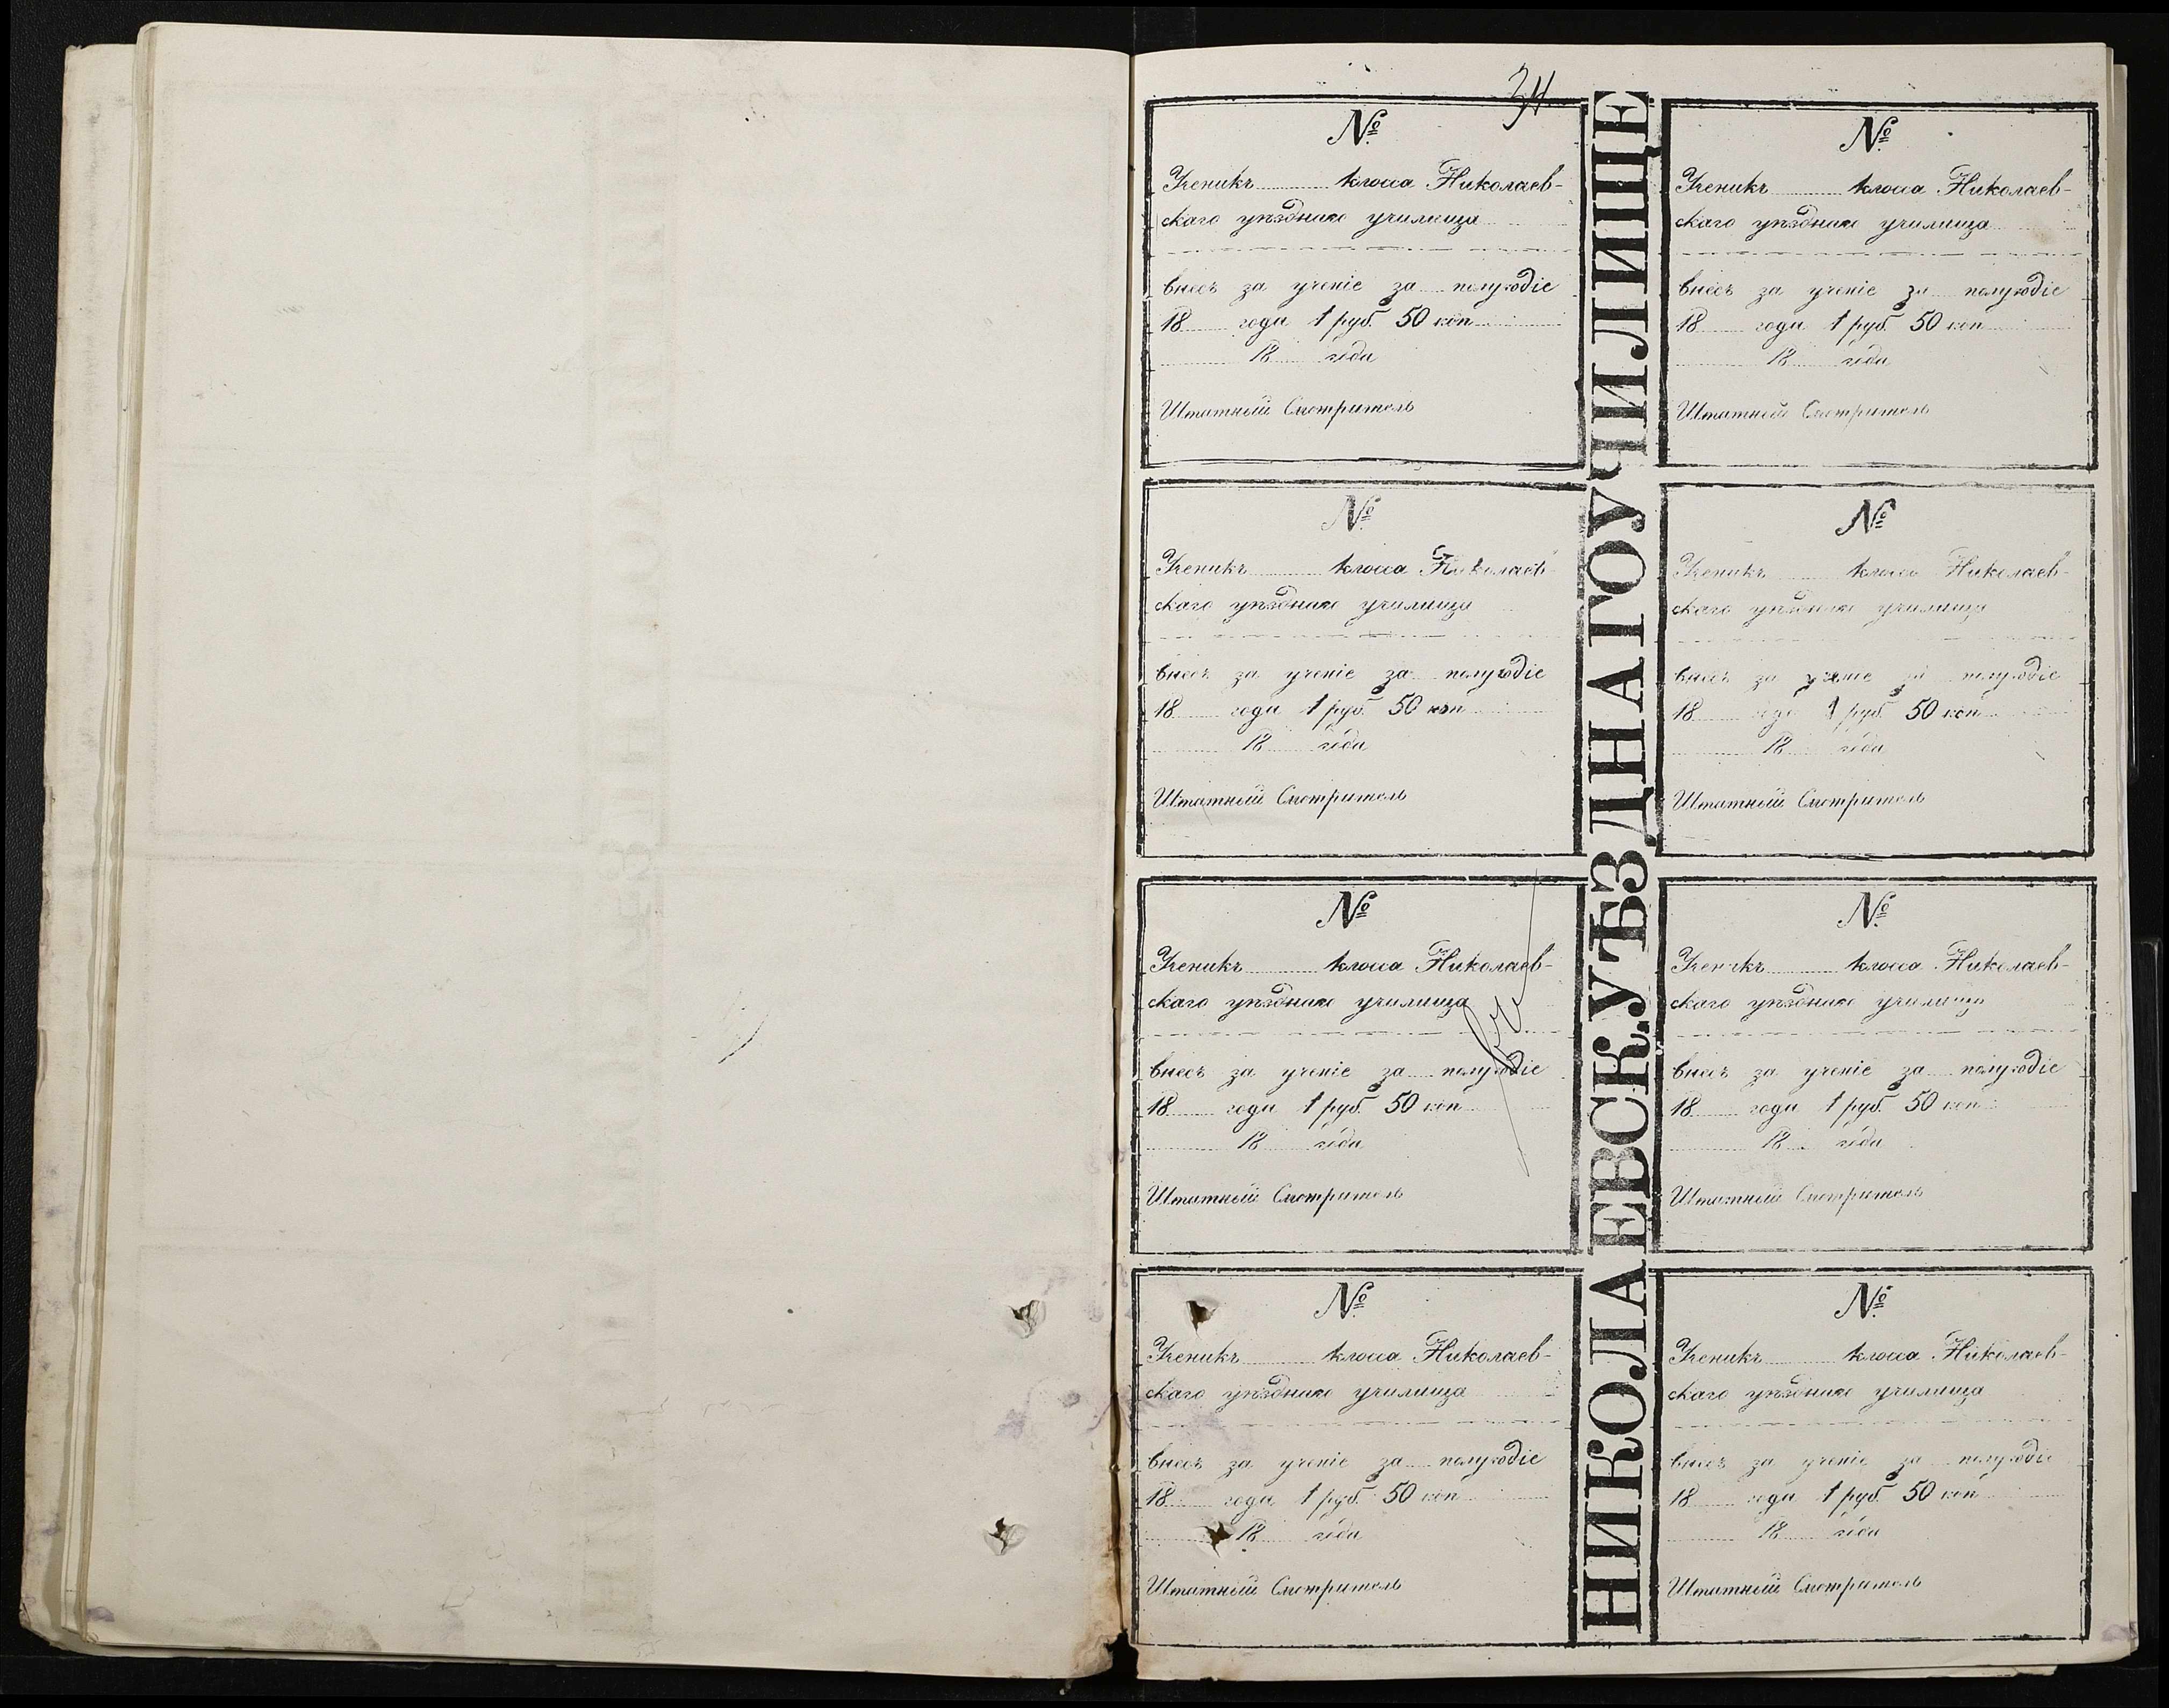 34
№
Ученикъ класса Николаев-
скаго уѣзднаго училища
внесъ за ученіе за полугодіе
18 года 1 руб. 50 коп
18 года
Штатный Смотритель
№
Ученикъ класса Николаев-
скаго уѣзднаго училища
внесъ за ученіе за полугодіе
18 года 1 руб. 50 коп
18 года
Штатный Смотритель
№
Ученикъ класса Николаев-
скаго уѣзднаго училища
внесъ за ученіе за полугодіе
18 года 1 руб. 50 коп
18 года
Штатный Смотритель
№
Ученикъ класса Николаев-
скаго уѣзднаго училища
внесъ за ученіе за полугодіе
18 года 1 руб. 50 коп
18 года
Штатный Смотритель
НИКОЛАЕВСК. УѢЗДНАГО УЧИЛИЩЕ
№
Ученикъ класса Николаев-
скаго уѣзднаго училища
внесъ за ученіе за полугодіе
18 года 1 руб. 50 коп
18 года
Штатный Смотритель
№
Ученикъ класса Николаев-
скаго уѣзднаго училища
внесъ за ученіе за полугодіе
18 года 1 руб. 50 коп
18 года
Штатный Смотритель
№
Ученикъ класса Николаев-
скаго уѣзднаго училища
внесъ за ученіе за полугодіе
18 года 1 руб. 50 коп
18 года
Штатный Смотритель
№
Ученикъ класса Николаев-
скаго уѣзднаго училища
внесъ за ученіе за полугодіе
18 года 1 руб. 50 коп
18 года
Штатный Смотритель